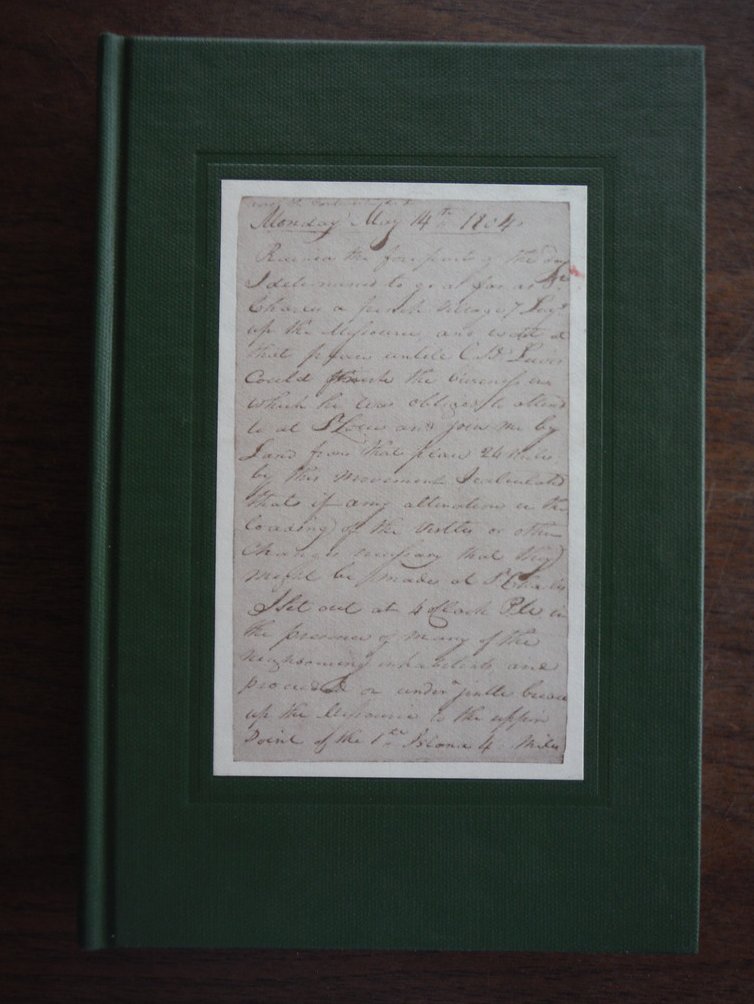 Monday May 14th 1804
Rained the forepart of the day
I determined to go as far as St.
Charles a french Village 7 Leags.
up the Missourie, and wait at
that place untile Capt. Lewis
Could finish the business in
which he was obliged to attend
to at St Louis and join me by
Land from that place 24 miles
by this movement I calculated
that if any alterations in the
loading of the Vestles or other
Changes necessary that they
might be made at St Charles
I Set out at 4 oClock P.M. in
the presence of many of the
neighbouring inhabitents and
proceeded on under a jentle breese
up the Missourie to the upper
Point of the 1st Island 4 Miles